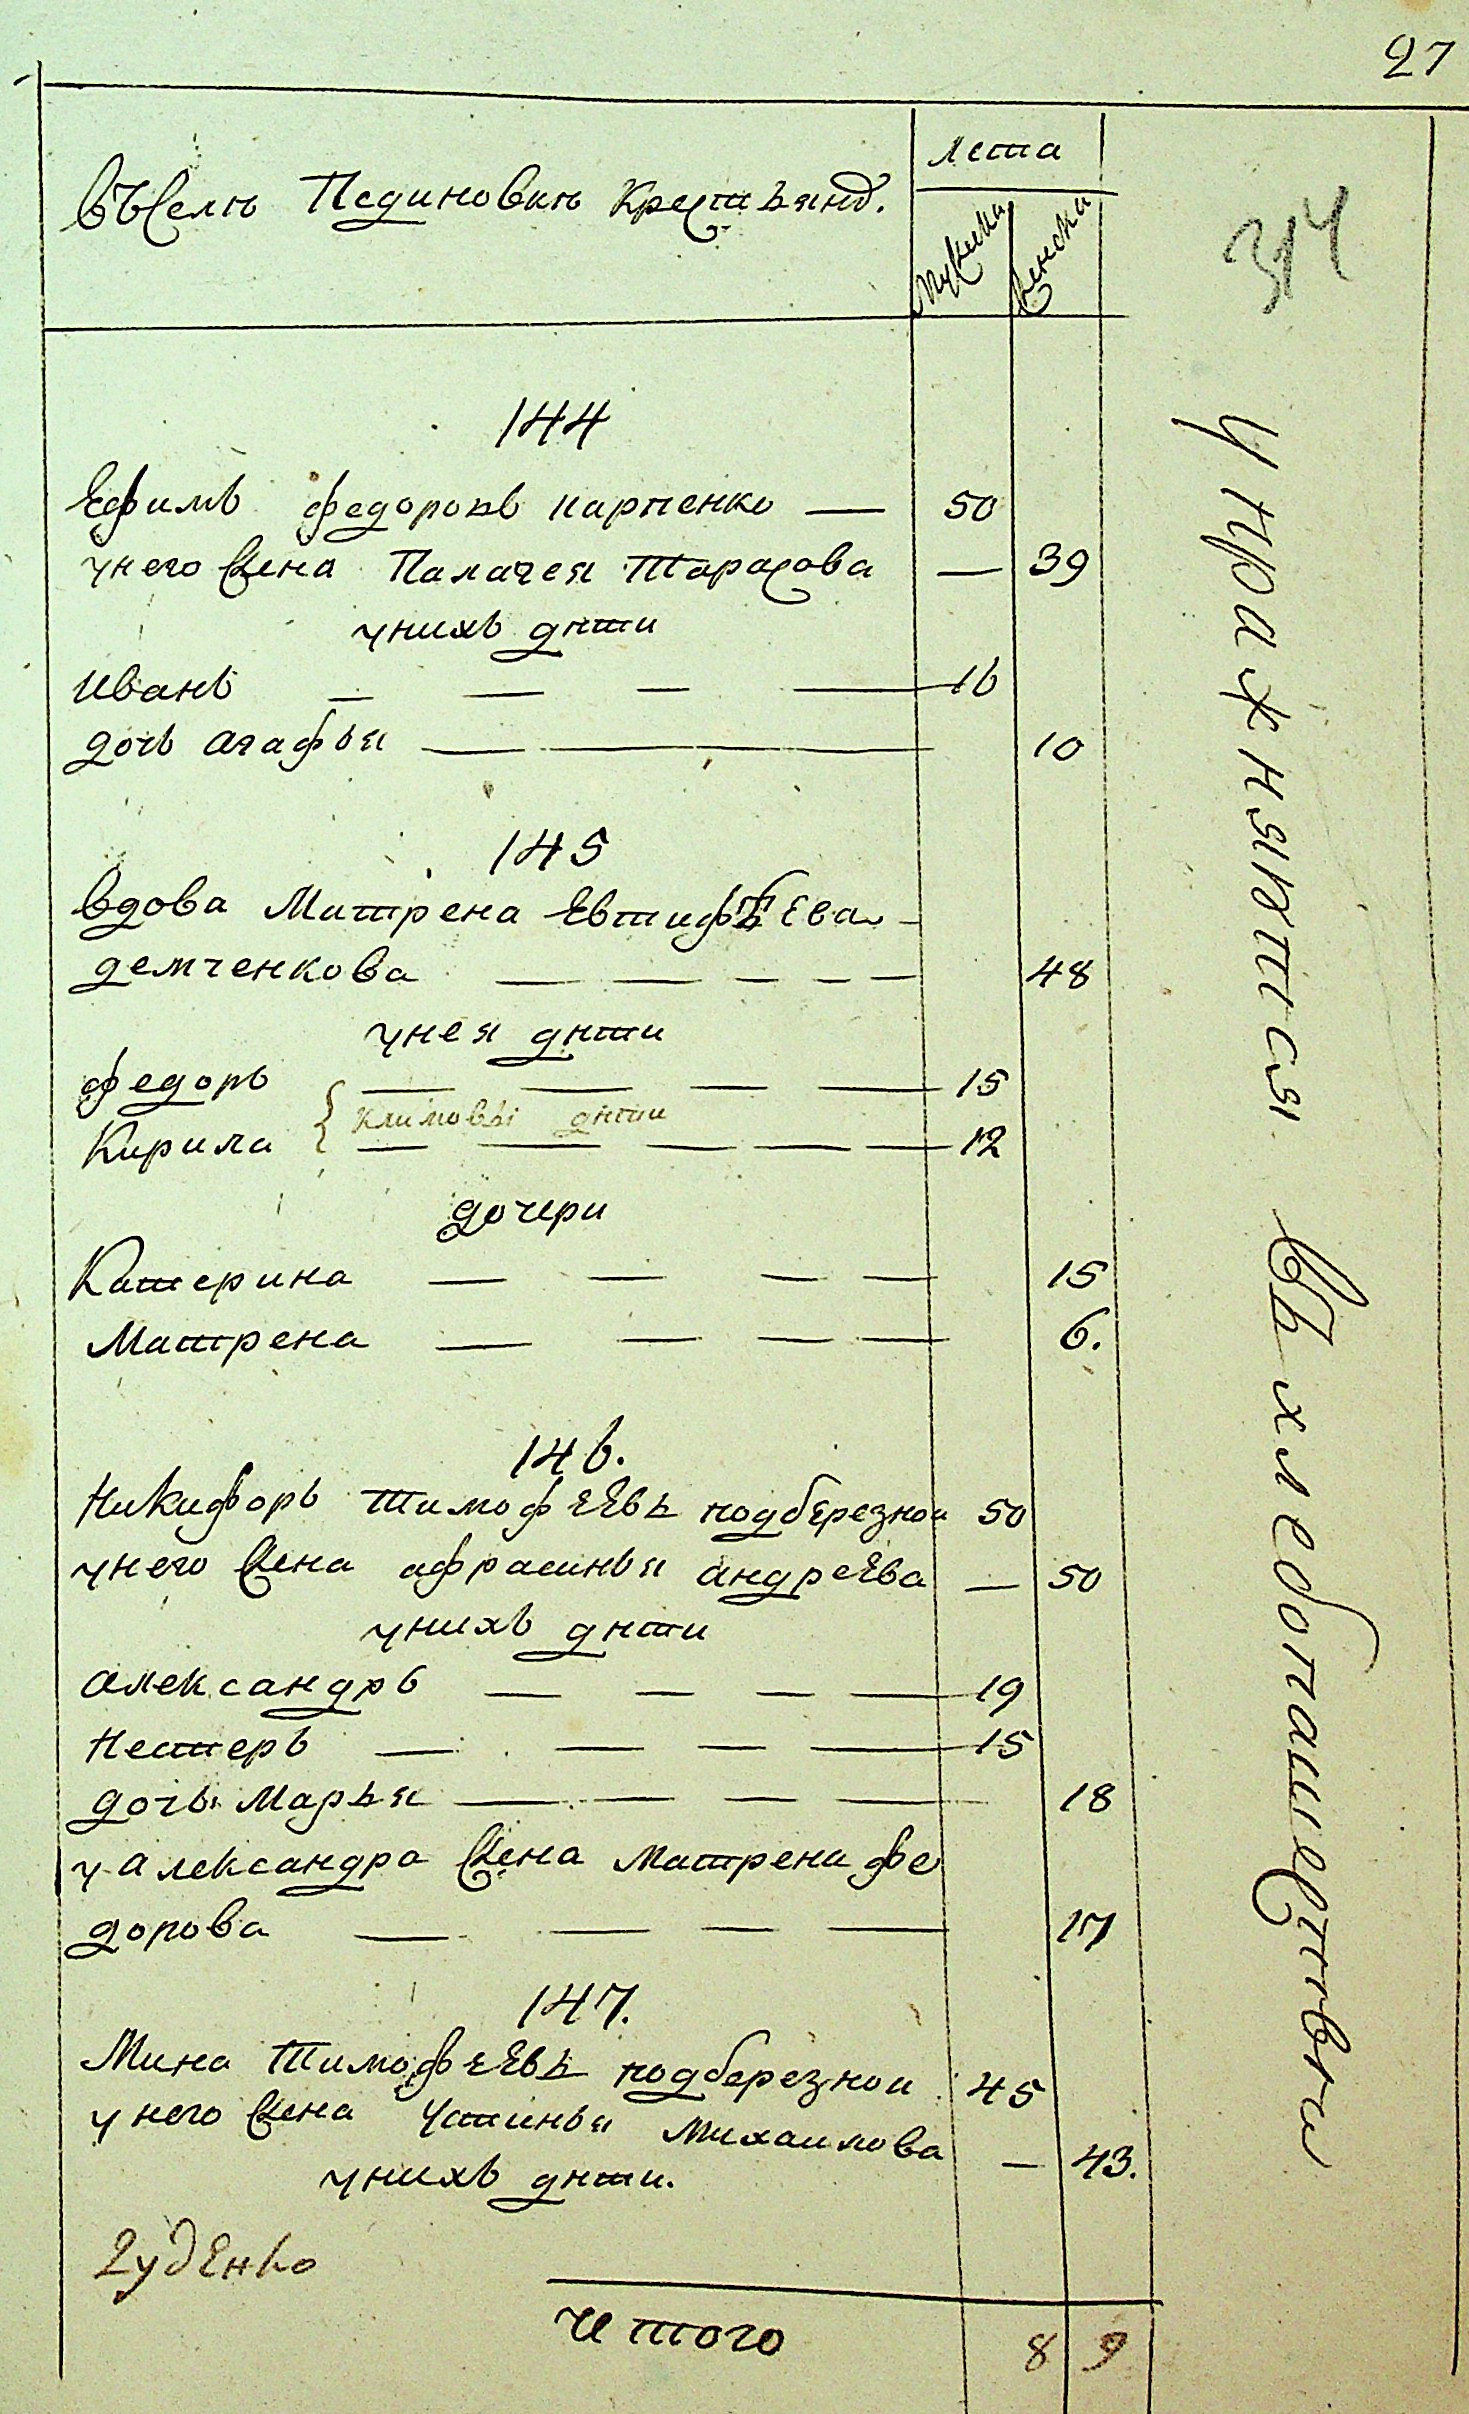 27
314
въселѣ Пединовкѣ крестьянъ.
лета
мужска
женска
144
Ефимъ федоровъ карпенко — 50
унего жена Палагея Тарасова — 39
унихъ дѣти
иванъ — — — — 16
дочь агафья — — 10
145
вдова Матрена Евтифѣева
демченкова — — — — — 48
унея дѣти
федоръ — — — — 15
климовы дѣти
Кирила — — — — — 12
дочери
Катерина — — — — 15
Матрена — — — — 6.
146.
Никифоръ Тимофеевъ подбережнои 50
унего жена афрасинья андреева — 50
унихъ дѣти
александръ — — — — 19
Нестеръ — — — — 15
дочь Марья — — — — 18
у александра жена матрена фе
дорова — — — — 17
147.
Мина Тимофеевъ подбережнои 45
унего жена устинья михаилова — 43.
унихъ дѣти.
Гуденко
Итого 8 9
упражняются въ хлебопашественни